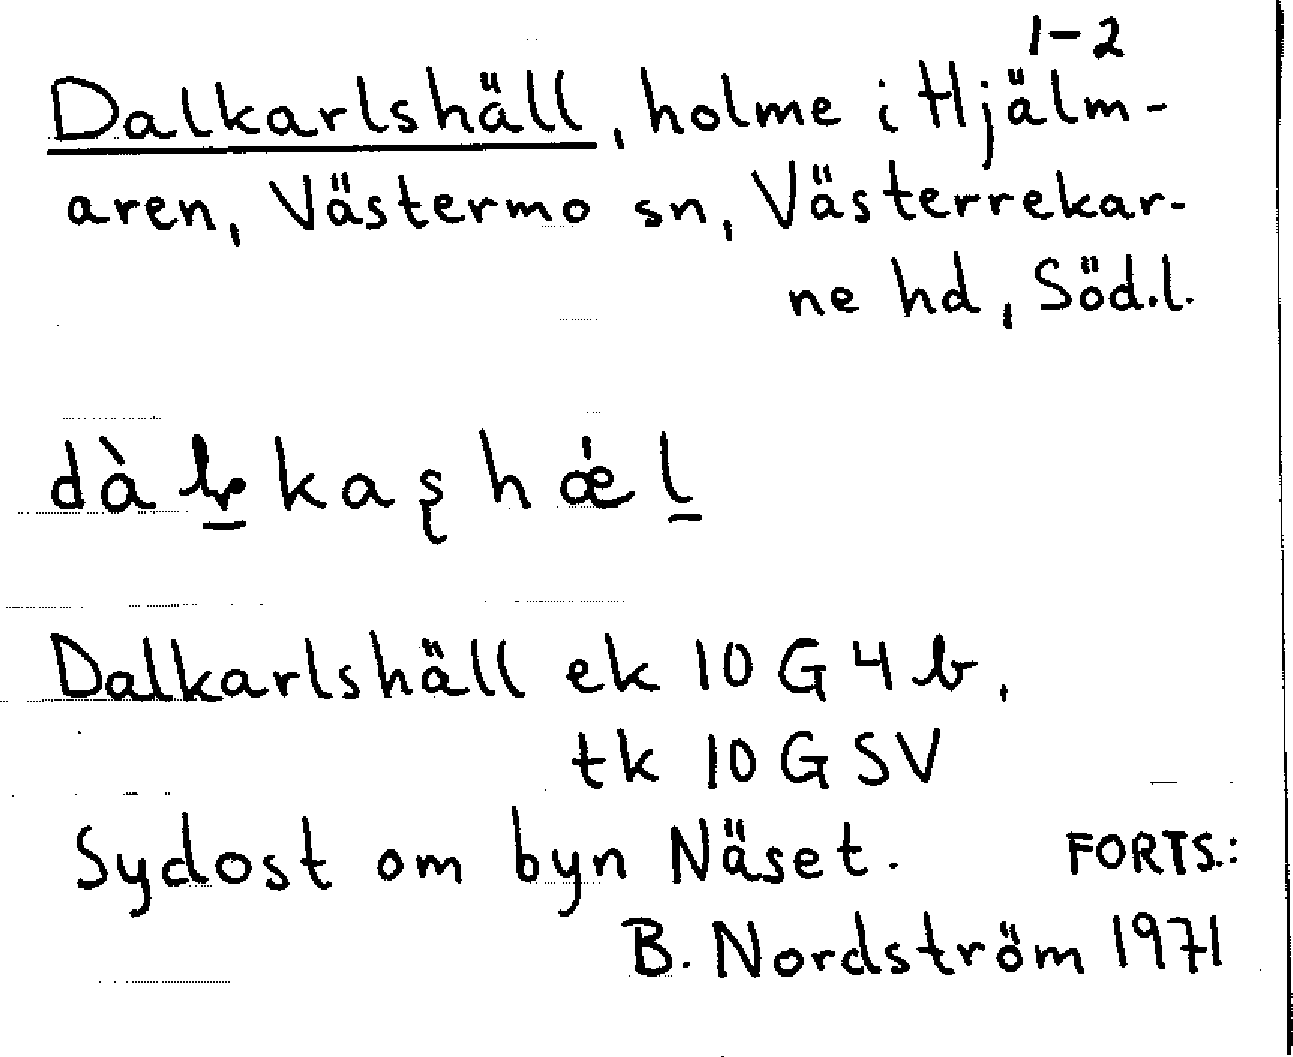 1-2
Dalkarlshäll, holme i Hjälm-
aren, Västermo sn, Västerrekar-
ne hd, Söd.l.
Dalkarlshäll ek 10 G 4 b,
tk 10 G SV
Sydost om byn Näset. FORTS.:
B. Nordström 1971